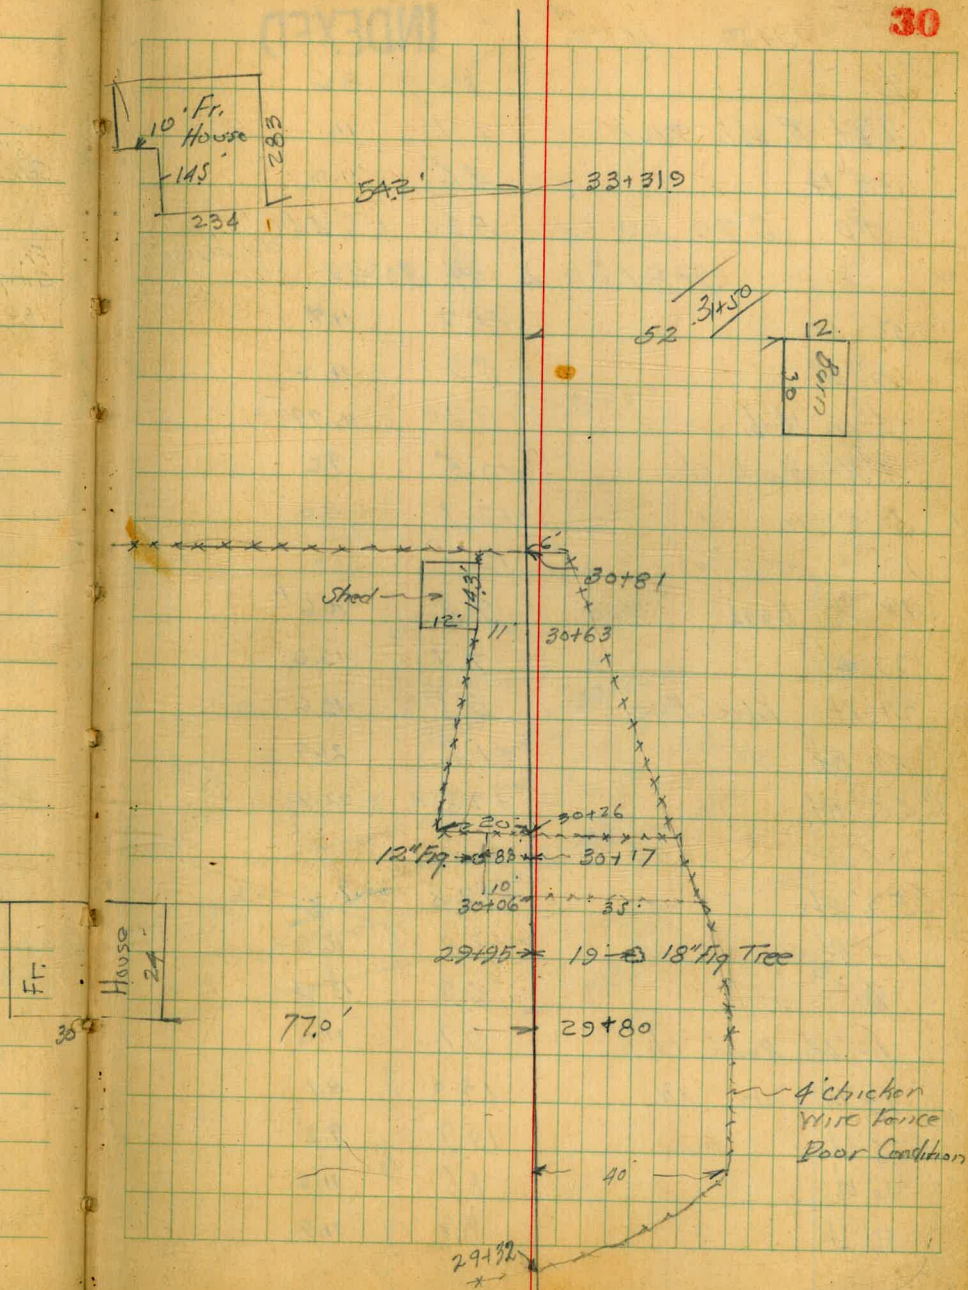 30
Fr.
House
10'
283
14.5'
234
54.2'
33+31.9
31+50
52
12.
Barn
30
6'
30+81
Shed
14.3'
12'
11'
30+63
20'
30+26
12" Fig
30+17
10'
30+06
35'
29+95
19
18" Fig Tree
Fr.
House
24'
77.0'
29+80
4' chicken
Wire Fence
Poor Condition
40'
29+32